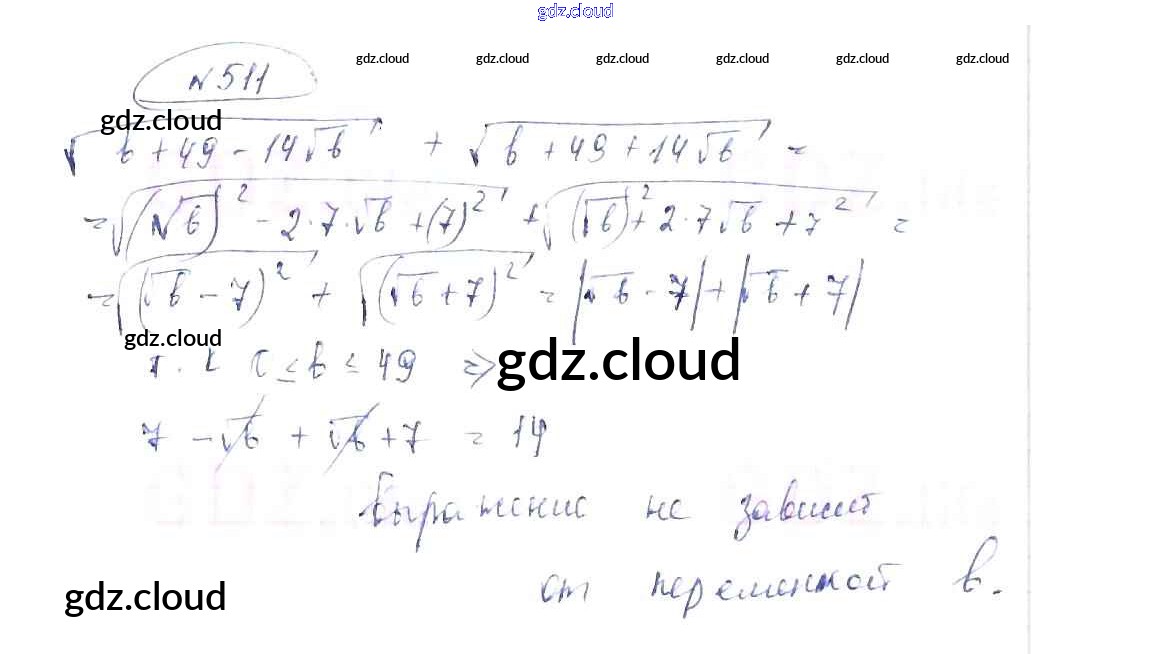 gdz.cloud
gdz.cloud gdz.cloud gdz.cloud gdz.cloud gdz.cloud gdz.cloud
№511
gdz.cloud
√(в + 49 - 14√в) + √(в + 49 + 14√в) =
= √((√в)² - 2·7·√в + (7)²) + √((√в)² + 2·7√в + 7²) =
= √((√в - 7)²) + √((√в + 7)²) = |√в - 7| + |√в + 7|
gdz.cloud
т.к ≤ в ≤ 49 ⇒
gdz.cloud
7 - √в + √в + 7 = 14
Выражение не зависит
от переменной в.
gdz.cloud